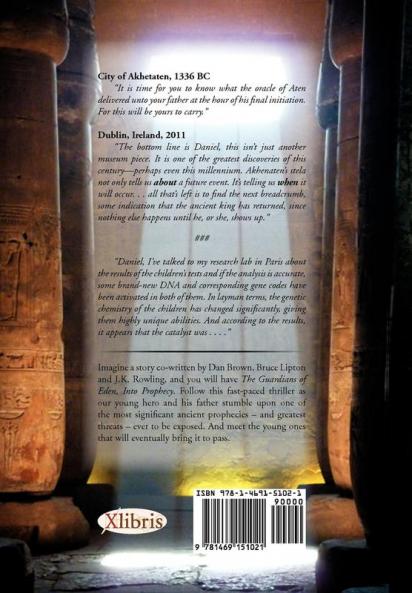 City of Akhetaten, 1336 BC
"It is time for you to know what the oracle of Aten
delivered unto your father at the hour of his final initiation.
For this will be yours to carry."
Dublin, Ireland, 2011
"The bottom line is Daniel, this isn't just another
museum piece. It is one of the greatest discoveries of this
century—perhaps even this millennium. Akhenaten's stela
not only tells us about a future event. It's telling us when it
will occur. . . all that's left is to find the next breadcrumb,
some indication that the ancient king has returned, since
nothing else happens until he, or she, shows up."
###
"Daniel, I've talked to my research lab in Paris about
the results of the children's tests and if the analysis is accurate,
some brand-new DNA and corresponding gene codes have
been activated in both of them. In layman terms, the genetic
chemistry of the children has changed significantly, giving
them highly unique abilities. And according to the results,
it appears that the catalyst was . . . ."
Imagine a story co-written by Dan Brown, Bruce Lipton
and J.K. Rowling, and you will have The Guardians of
Eden, Into Prophecy. Follow this fast-paced thriller as
our young hero and his father stumble upon one of
the most significant ancient prophecies – and greatest
threats – ever to be exposed. And meet the young ones
that will eventually bring it to pass.
Xlibris
ISBN 978-1-4691-5102-1
90000
9 781469 151021